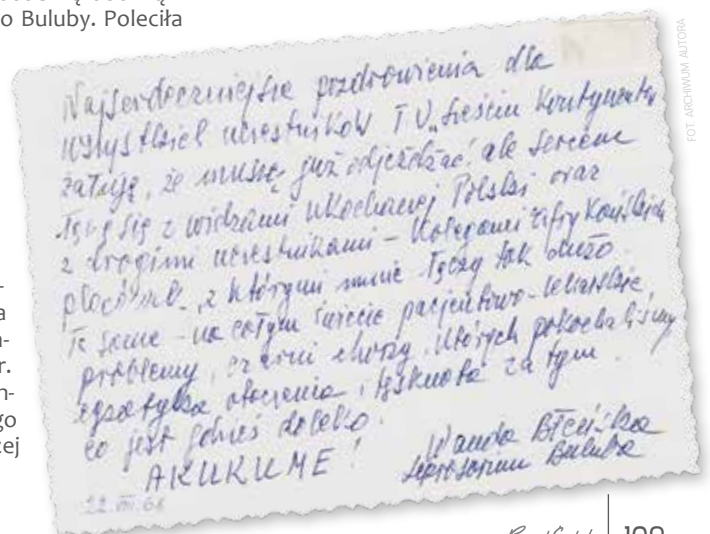 o Buluby. Poleciła
Najserdeczniejsze pozdrowienia dla
wszystkich uczestników TV „Sześciu Kontynentów
żałuję, że muszę już odjeżdżać, ale sercem
łączę się z widzami ukochanej Polski oraz
z drogimi uczestnikami – Kolegami z Afrykańskich
placówek, z którymi mnie łączy tak dużo.
Te same – na całym świecie pacjentowo-lekarskie
problemy, czarni chorzy, których pokochaliśmy
egzotyka otoczenia i tęsknota za tym
co jest gdzieś daleko.
AKUKUME!
Wanda Błeńska
Leprosarium Buluba
FOT. ARCHIWUM AUTORA
r.
go
cej
109